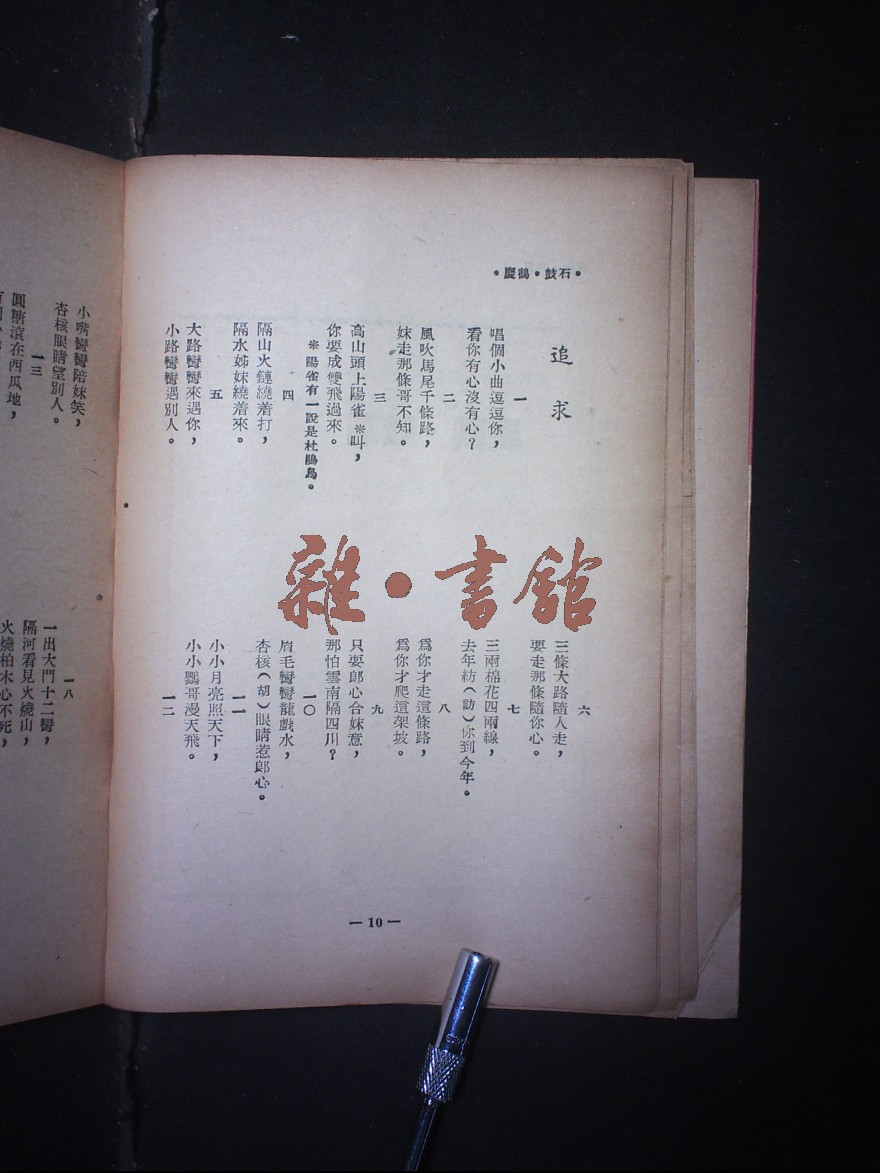 •石鼓•鶴慶•
追求
一
唱個小曲逗逗你，
看你有心沒有心？
二
風吹馬尾千條路，
妹走那條哥不知。
三
高山頭上陽雀※叫，
你要成雙飛過來。
※陽雀有一說是杜鵑鳥。
四
隔山火鏈繞着打，
隔水姊妹繞着來。
五
大路彎彎來遇你，
小路彎彎遇別人。
六
三條大路隨人走，
要走那條隨你心。
七
三兩棉花四兩線，
去年紡（訪）你到今年。
八
爲你才走這條路，
爲你才爬這架坡。
九
只要郎心合妹意，
那怕雲南隔四川？
一〇
眉毛彎彎龍戲水，
杏核（胡）眼睛惹郎心。
一一
小小月亮照天下，
小小鸚哥漫天飛。
一二
— 10 —
小嘴彎彎陪妹笑，
杏核眼睛望別人。
一三
圓糖滾在西瓜地，
一八
一出大門十二彎，
隔河看見火燒山，
火燒柏木心不死，
雜•書舘